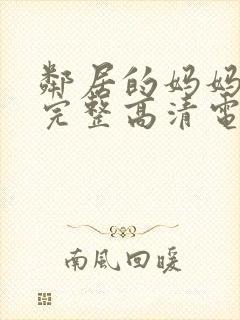 鄰居的妈妈
完整高清電
南風回暖